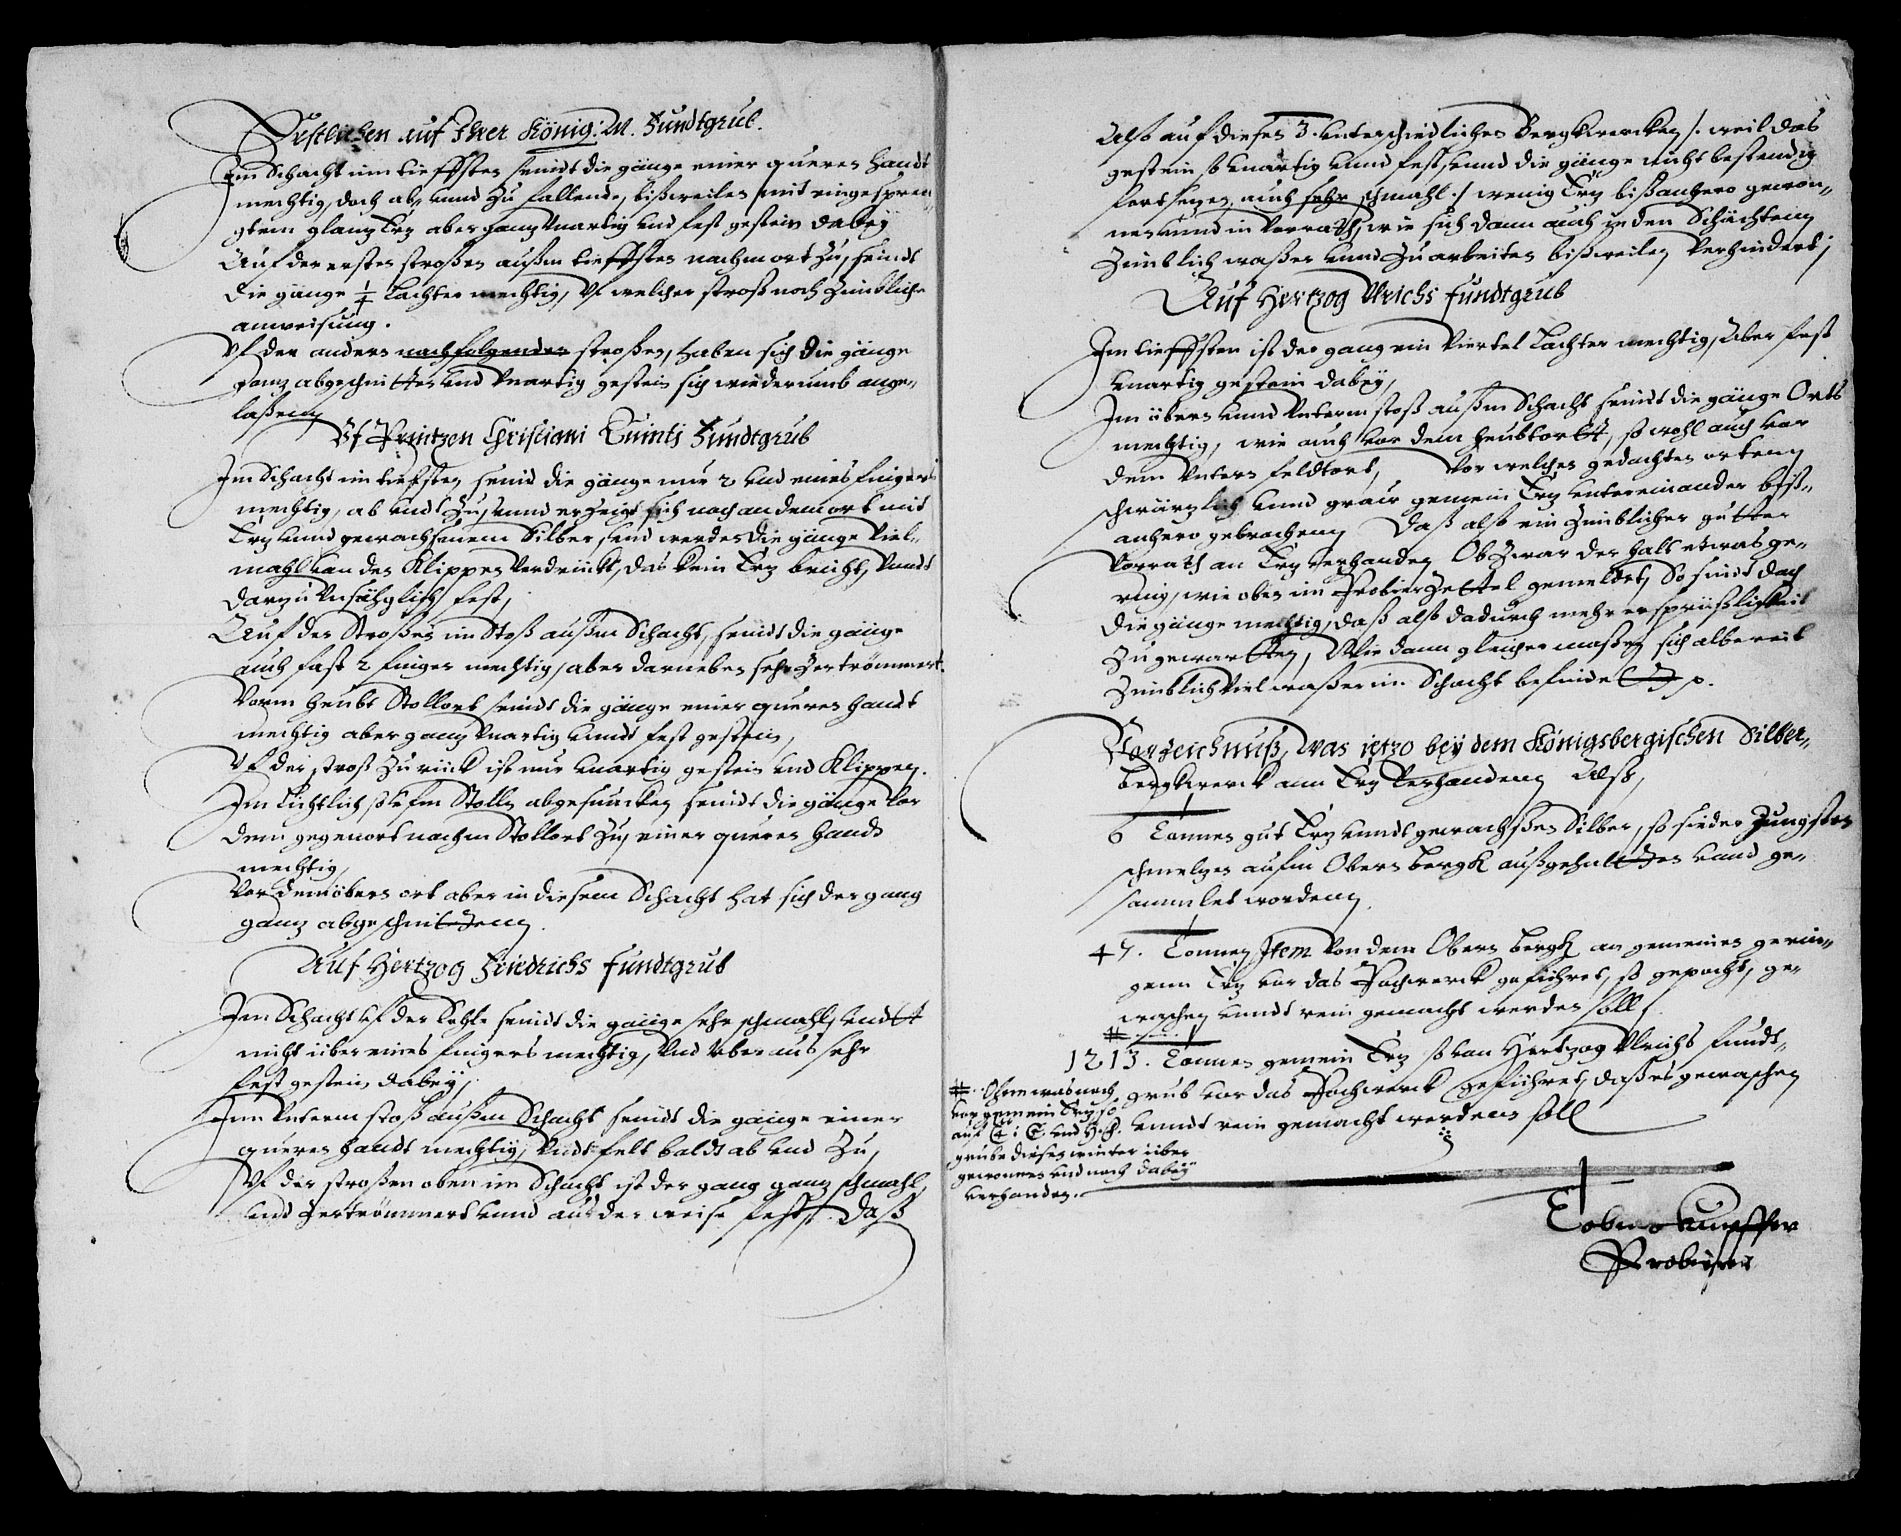 Erstlichen auf Ihrer König: M. Fundtgrub.
Im Schacht im tieffsten seindt die gänge einer queren handt
mechtig, doch ab, vnnd zu fallende, bißweilen mit eingespren-
gtem glantz Ertz aber gantz knartig vnd fest gestein dabey
Auf der ersten stroßen außm tieffsten nachm ort zu, seindt
die gänge 1/4 lachter mechtig, Vf welcher stroß noch zimbliche
anweisung.
Vf der andern nachfolgenden stroßen, haben sich die gänge
gantz abgeschnitten vnd knartig gestein sich wiederumb ange-
laßenn
Vf Printzen Christiani Quinti Fundtgrub
Im Schacht im tiefsten seind die gänge nur 2 vnd eines fingers
mechtig, ab vnd zu, vnnd erzeigt sich noch an dem ort mit
Ertz vnnd gewachsenem Silber, vnd werden die gänge viel-
mahl von den Klippen verdrückt, das kein Ertz bricht, vnndt
dartzu vnsäglich fest,
Auf der Stroßen im Stoß außm Schacht, seindt die gänge
auch fast 2 finger mechtig, aber darneben sehr zertrömmert.
Vorm heubt Stollort seindt die gänge einer queren handt
mechtig aber gantz knartig vnndt fest gestein,
Vf der stroß zu rück ist nur knartig gestein vnd Klippen.
Im lichtloch ufm Stolln abgesuncken seindt die gänge vor
dem gegenort nachm Stollort zu, einer queren handt
mechtig,
Vor dem öbern ort aber in diesem Schacht hat sich der gang
gantz abgeschnittenn.
Auf Hertzog Friedrichs fundtgrub
Im Schacht vf der Sohle seindt die gänge sehr schmahl, vndtt
nicht über eines fingers mechtig, Vnd vber aus sehr
fest gestein dabey,
Im Vnterm stoß außm Schacht seindt die gänge einer
queren handt mechtig, Vndt felt baldt ab vnd zu,
Vf der stroßen oben im Schacht ist der gang gantz schmahl,
vnd zertrömmert vnnd aus der weise fest. Daß
Alß auf diesen 3. vnterschiedlichen Bergkwercken /: weil das
gestein so knartig vnnd fest, vnnd die gänge nicht bestendig
fort setzen, auch sehr schmahl :/ wenig Ertz bißanhero gewon-
nen vnnd in Vorrath, wie sich dann auch in den Schächtenn
zimblich waßer vnnd zu arbeiten bißweilen verhindert;
Auf Hertzog Vlrichs fundtgrub
Im tieffsten ist der gang ein viertel lachter mechtig, Aber fest
knartig gestein dabey,
Im übern vnnd Vnterm stoß außm Schacht seindt die gänge Orts
mechtig, wie auch vor dem heubtortt, so wohl auch vor
dem Vntern feldtort, Vor welchen gedachten ortenn
schwürtzlich vnnd graw gemein Ertz vntereinander biß-
anhero gebrochenn, Daß alß ein zimblicher gutter
Vorrath an Ertz verhanden Ob zwar der halt etwas ge-
ring, wie oben im Probierzettel gemeldet, So seindt doch
die gänge mechtig, daß alß dadurch mehr ersprüßligkeit
zugewartten, Wie dann gleicher maßen sich albereit
zimblich viel waßer im Schacht befindett p.
Vorzeichnuß, was ietzo bey dem Königsbergischen Silber-
bergkwerck ann Ertz verhandenn Alß,
6 Tonnen gut Ertz vnndt gewachßen Silber, so sieder Jungsten
schmeltzen aufm Obern bergk außgehaltten vnnd ge-
samlet wordenn
47. Tonnen Item Von dem Obern bergk an gemeinen gerin-
gem Ertz vor das Pochwerck geführet, so gepocht, ge-
waschen vnndt rein gemacht werden soll,
1213. Tonnen gemein Ertz so von Hertzog Vlrichs fundt-
grub vor das Pochwerck geführet, daß es gewaschen
vnndt rein gemacht werdenn soll
#. Ohne was noch
vor gemein Ertz so
grube diesen winter über
gewonnen vnd noch dabey
verhanden.
Tobias Kupffer
Probierer